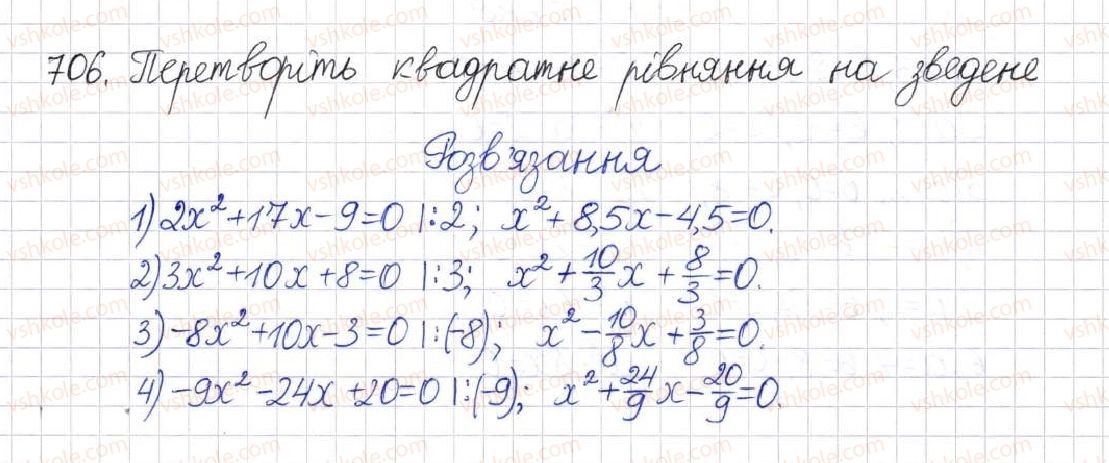 706. Перетворіть квадратне рівняння на зведене
Розв'язання
1) 2x²+17x-9=0 |:2; x²+8,5x-4,5=0.
2) 3x²+10x+8=0 |:3; x²+10/3x+8/3=0.
3) -8x²+10x-3=0 |:(-8); x²-10/8x+3/8=0.
4) -9x²-24x+20=0 |:(-9); x²+24/9x-20/9=0.